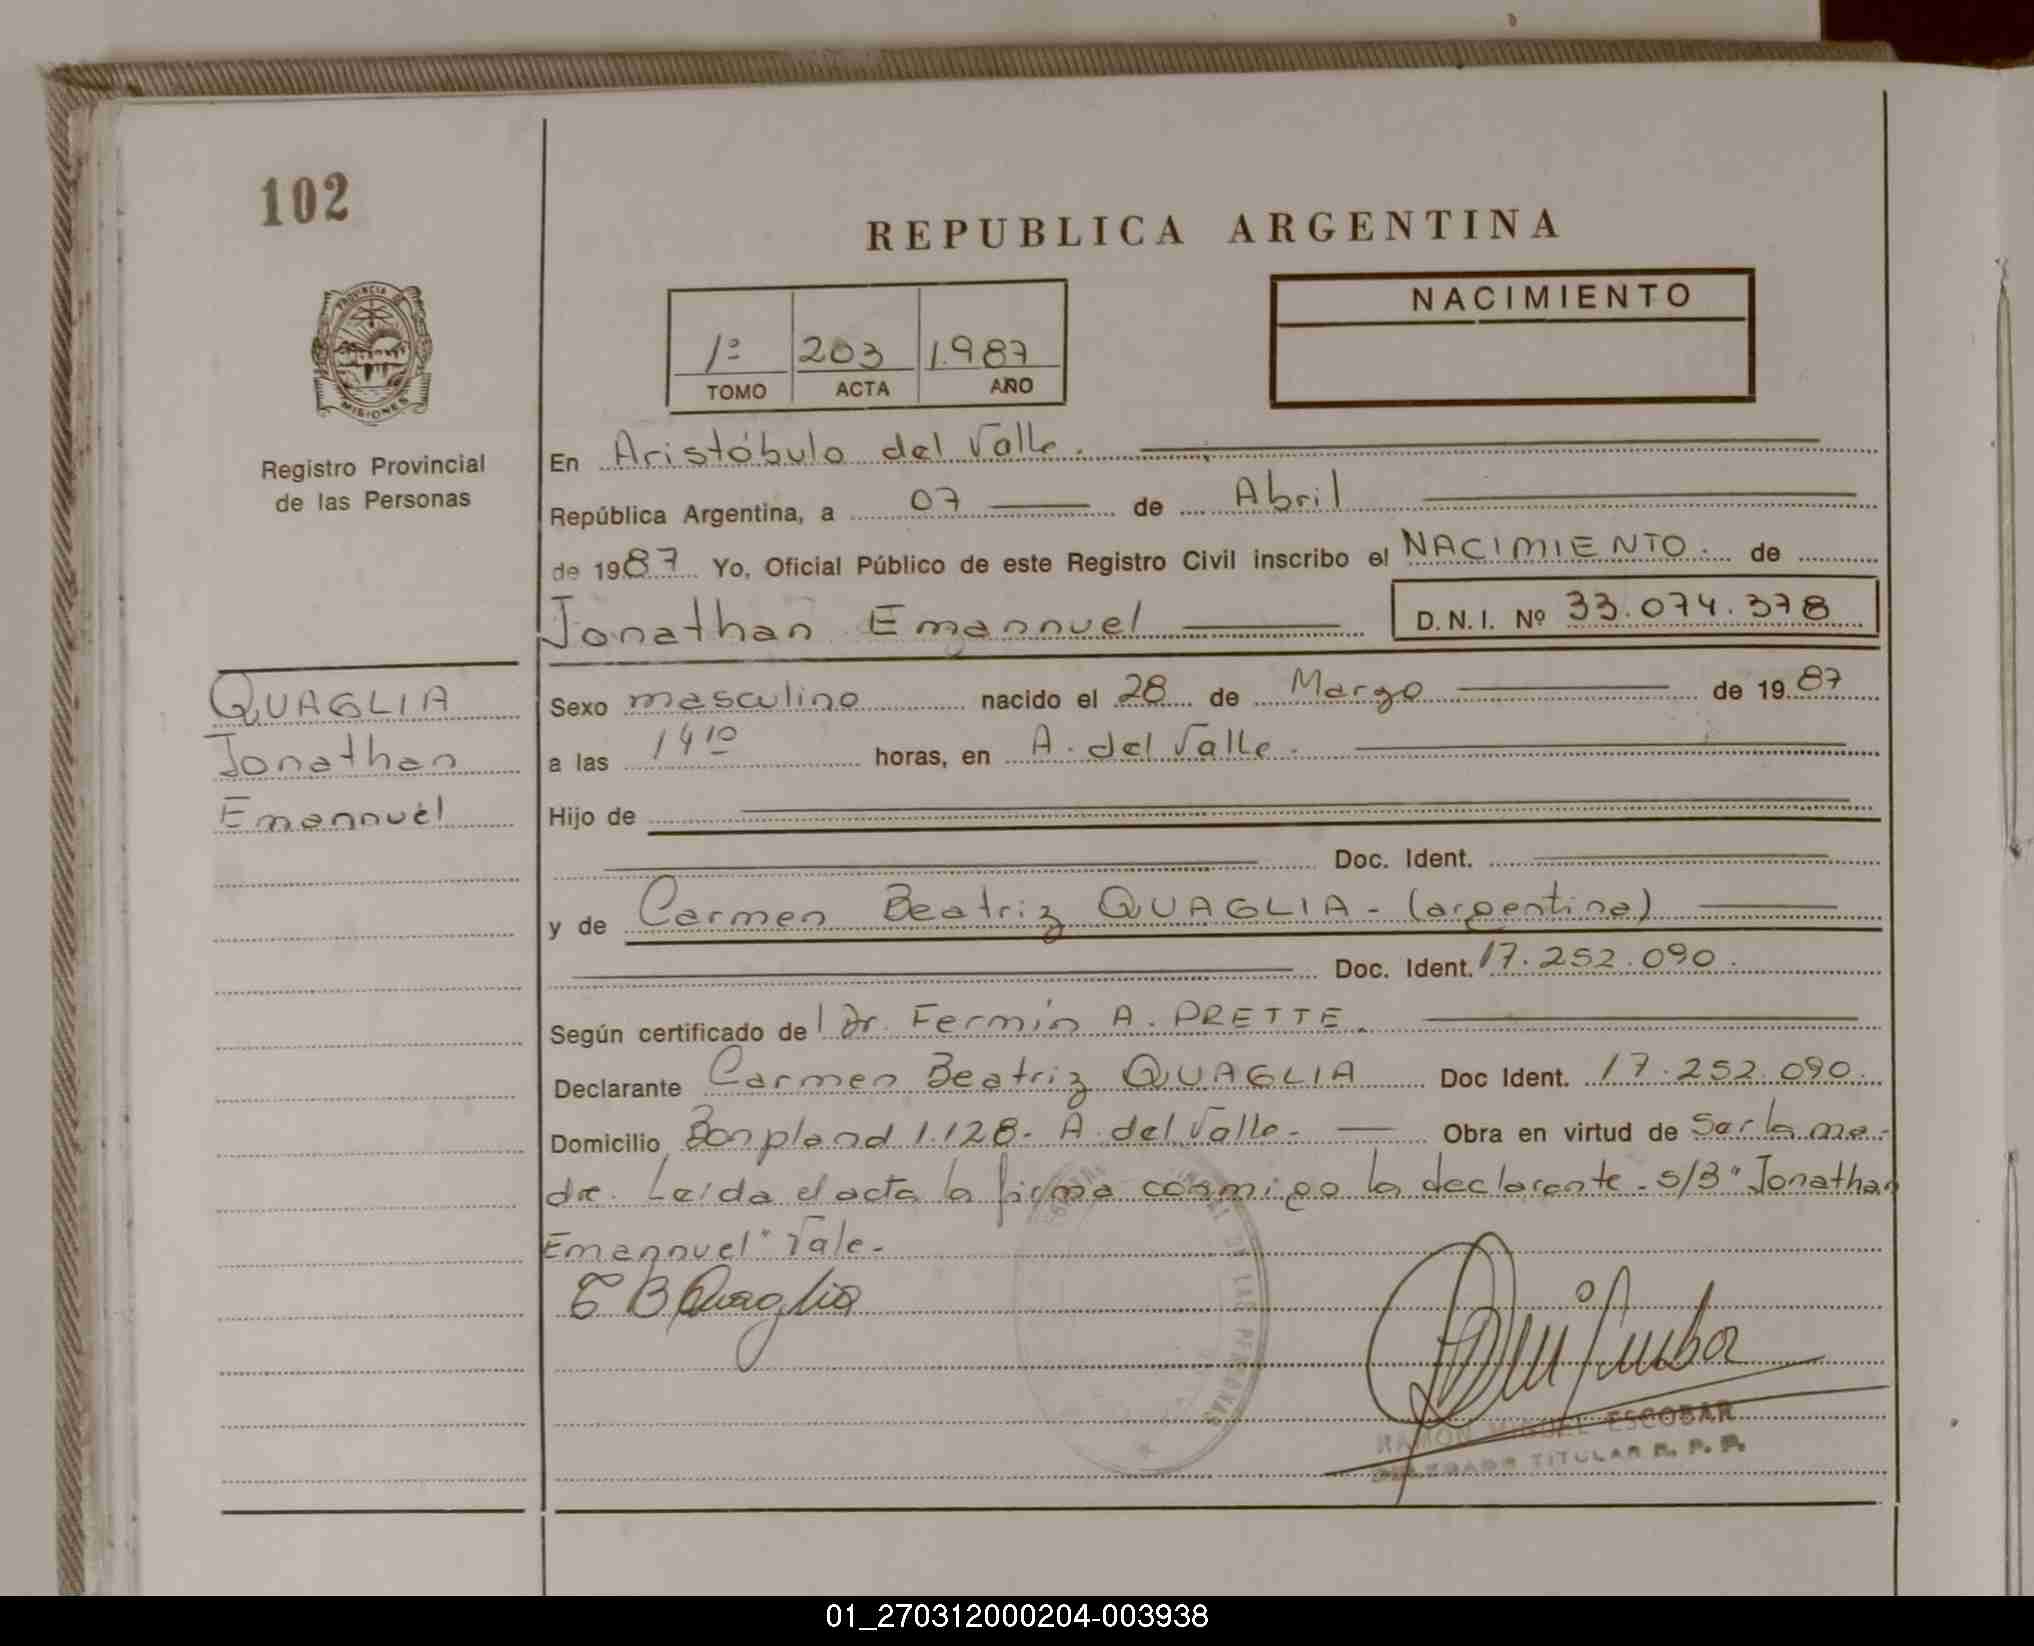 102
REPUBLICA ARGENTINA
PROVINCIA DE
MISIONES
Registro Provincial
de las Personas
1º 203 1.987
TOMO ACTA AÑO
NACIMIENTO
En Aristóbulo del Valle.
República Argentina, a 07 de Abril
de 1987 Yo, Oficial Público de este Registro Civil inscribo el NACIMIENTO. de
Jonathan Emannuel D.N.I. Nº 33.074.378
QUAGLIA
Jonathan
Emannuel
Sexo masculino nacido el 28 de Marzo de 1987
a las 14 10 horas, en A. del Valle.
Hijo de
Doc. Ident.
y de Carmen Beatriz QUAGLIA - (argentina)
Doc. Ident. 17.252.090.
Según certificado de Dr. Fermín A. PRETTE.
Declarante Carmen Beatriz QUAGLIA Doc Ident. 17.252.090.
Domicilio Bonpland 1.128- A. del Valle- Obra en virtud de Ser la ma-
dre. Leída el acta la firma conmigo la declarante. s/B "Jonathan
Emannuel" Vale-
C B Quaglia
DE LAS PERSONAS
RAMON MIGUEL ESCOBAR
DELEGADO TITULAR R. P. P.
01_270312000204-003938